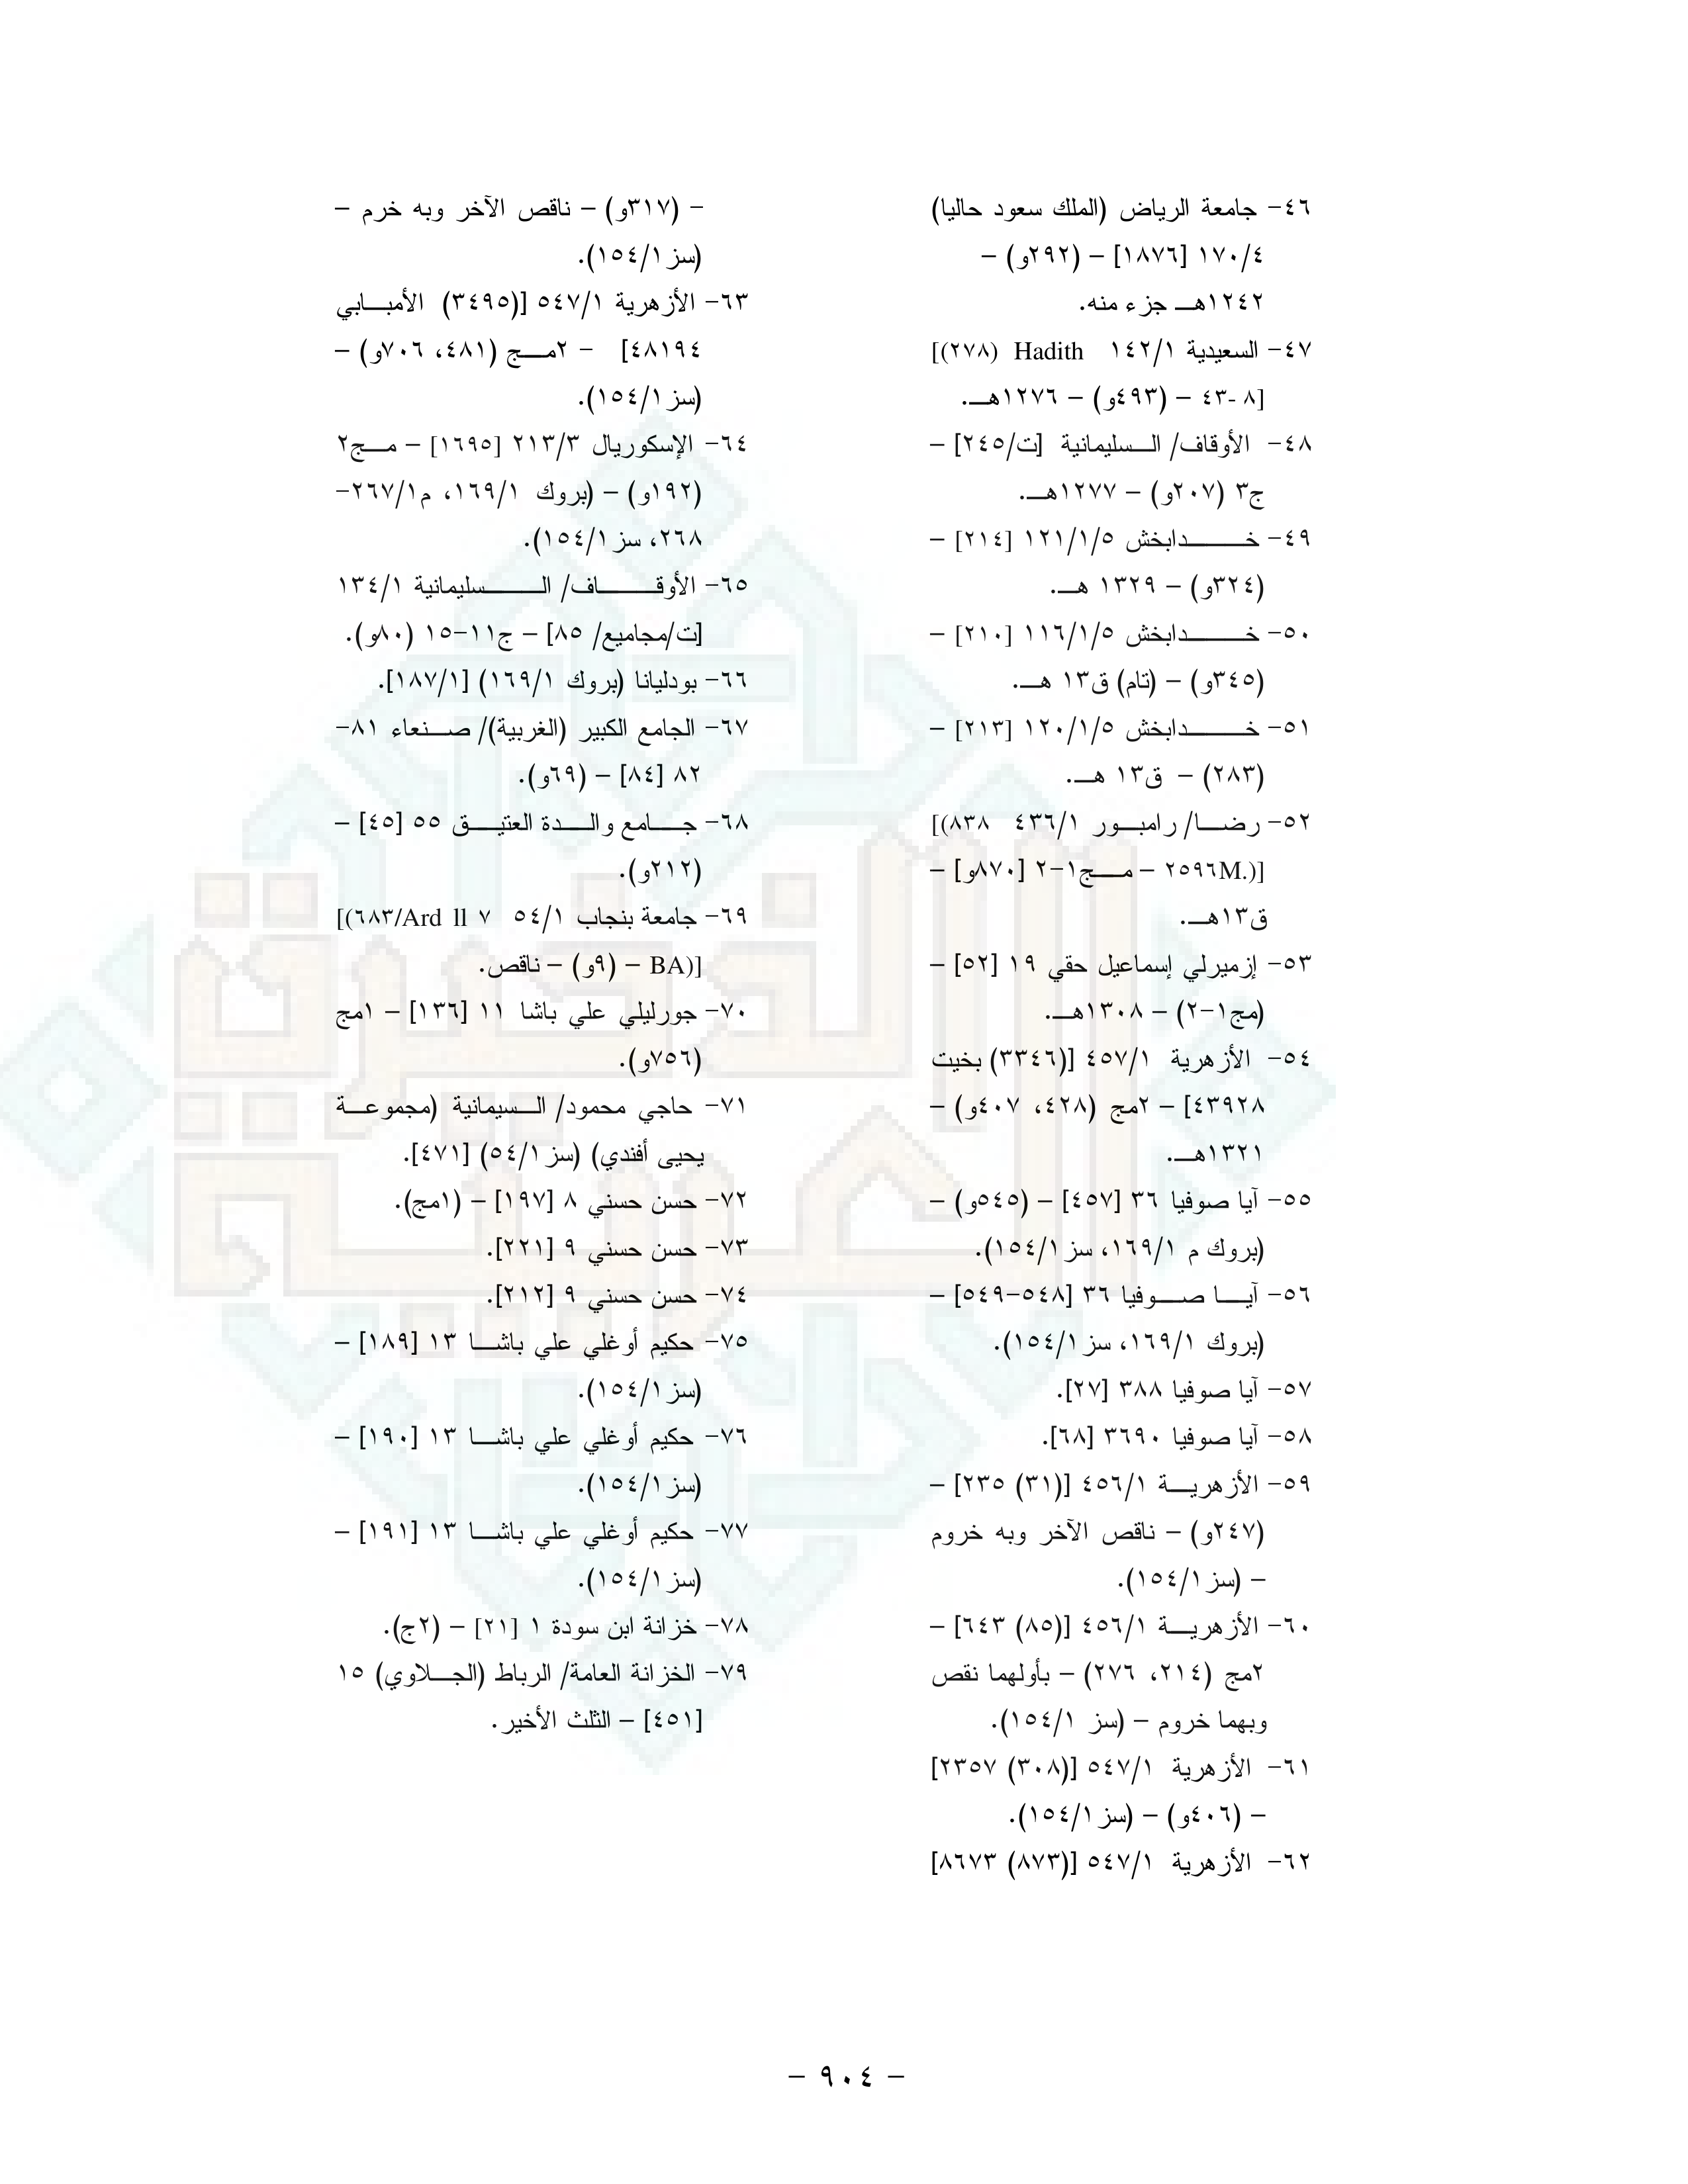 ٤٦- جامعة الرياض (الملك سعود حاليا)
١٧٠/٤ [١٨٧٦] – (٢٩٢و) –
١٢٤٢هـ جزء منه.
٤٧- السعيدية ١٤٢/١ Hadith (٢٧٨)]
[٨ -٤٣ – (٤٩٣و) – ١٢٧٦هـ.
٤٨- الأوقاف/ السليمانية [ت/٢٤٥] –
ج٣ (٢٠٧و) – ١٢٧٧هـ.
٤٩- خدابخش ١٢١/١/٥ [٢١٤] –
(٣٢٤و) – ١٣٢٩ هـ.
٥٠- خدابخش ١١٦/١/٥ [٢١٠] –
(٣٤٥و) – (تام) ق١٣ هـ.
٥١- خدابخش ١٢٠/١/٥ [٢١٣] –
(٢٨٣) – ق١٣ هـ.
٥٢- رضا/ رامبور ٤٣٦/١ ٨٣٨)]
[(.٢٥٩٦M – مج١-٢ [٨٧٠و] –
ق١٣هـ.
٥٣- إزميرلي إسماعيل حقي ١٩ [٥٢] –
(مج١-٢) – ١٣٠٨هـ.
٥٤- الأزهرية ٤٥٧/١ [(٣٣٤٦) بخيت
٤٣٩٢٨] – ٢مج (٤٢٨، ٤٠٧و) –
١٣٢١هـ.
٥٥- آيا صوفيا ٣٦ [٤٥٧] – (٥٤٥و) –
(بروك م ١٦٩/١، سز١٥٤/١).
٥٦- آيا صوفيا ٣٦ [٥٤٨-٥٤٩] –
(بروك ١٦٩/١، سز١٥٤/١).
٥٧- آيا صوفيا ٣٨٨ [٢٧].
٥٨- آيا صوفيا ٣٦٩٠ [٦٨].
٥٩- الأزهرية ٤٥٦/١ [(٣١) ٢٣٥] –
(٢٤٧و) – ناقص الآخر وبه خروم
– (سز١٥٤/١).
٦٠- الأزهرية ٤٥٦/١ [(٨٥) ٦٤٣] –
٢مج (٢١٤، ٢٧٦) – بأولهما نقص
وبهما خروم – (سز ١٥٤/١).
٦١- الأزهرية ٥٤٧/١ [(٣٠٨) ٢٣٥٧]
– (٤٠٦و) – (سز١٥٤/١).
٦٢- الأزهرية ٥٤٧/١ [(٨٧٣) ٨٦٧٣]
- (٣١٧و) – ناقص الآخر وبه خرم –
(سز١٥٤/١).
٦٣- الأزهرية ٥٤٧/١ [(٣٤٩٥) الأمبابي
٤٨١٩٤] - ٢مج (٤٨١، ٧٠٦و) –
(سز١٥٤/١).
٦٤- الإسكوريال ٢١٣/٣ [١٦٩٥] – مج٢
(١٩٢و) – (بروك ١٦٩/١، م٢٦٧/١-
٢٦٨، سز١٥٤/١).
٦٥- الأوقاف/ السليمانية ١٣٤/١
[ت/مجاميع/ ٨٥] – ج١١-١٥ (٨٠و).
٦٦- بودليانا (بروك ١٦٩/١) [١٨٧/١].
٦٧- الجامع الكبير (الغربية)/ صنعاء ٨١-
٨٢ [٨٤] – (٦٩و).
٦٨- جامع والدة العتيق ٥٥ [٤٥] –
(٢١٢و).
٦٩- جامعة بنجاب ٥٤/١ ٧ Ard ll/٦٨٣)]
[(BA – (٩و) – ناقص.
٧٠- جورليلي علي باشا ١١ [١٣٦] – ١مج
(٧٥٦و).
٧١- حاجي محمود/ السيمانية (مجموعة
يحيى أفندي) (سز٥٤/١) [٤٧١].
٧٢- حسن حسني ٨ [١٩٧] – (١مج).
٧٣- حسن حسني ٩ [٢٢١].
٧٤- حسن حسني ٩ [٢١٢].
٧٥- حكيم أوغلي علي باشا ١٣ [١٨٩] –
(سز١٥٤/١).
٧٦- حكيم أوغلي علي باشا ١٣ [١٩٠] –
(سز١٥٤/١).
٧٧- حكيم أوغلي علي باشا ١٣ [١٩١] –
(سز١٥٤/١).
٧٨- خزانة ابن سودة ١ [٢١] – (٢ج).
٧٩- الخزانة العامة/ الرباط (الجلاوي) ١٥
[٤٥١] – الثلث الأخير.
– ٩٠٤ –